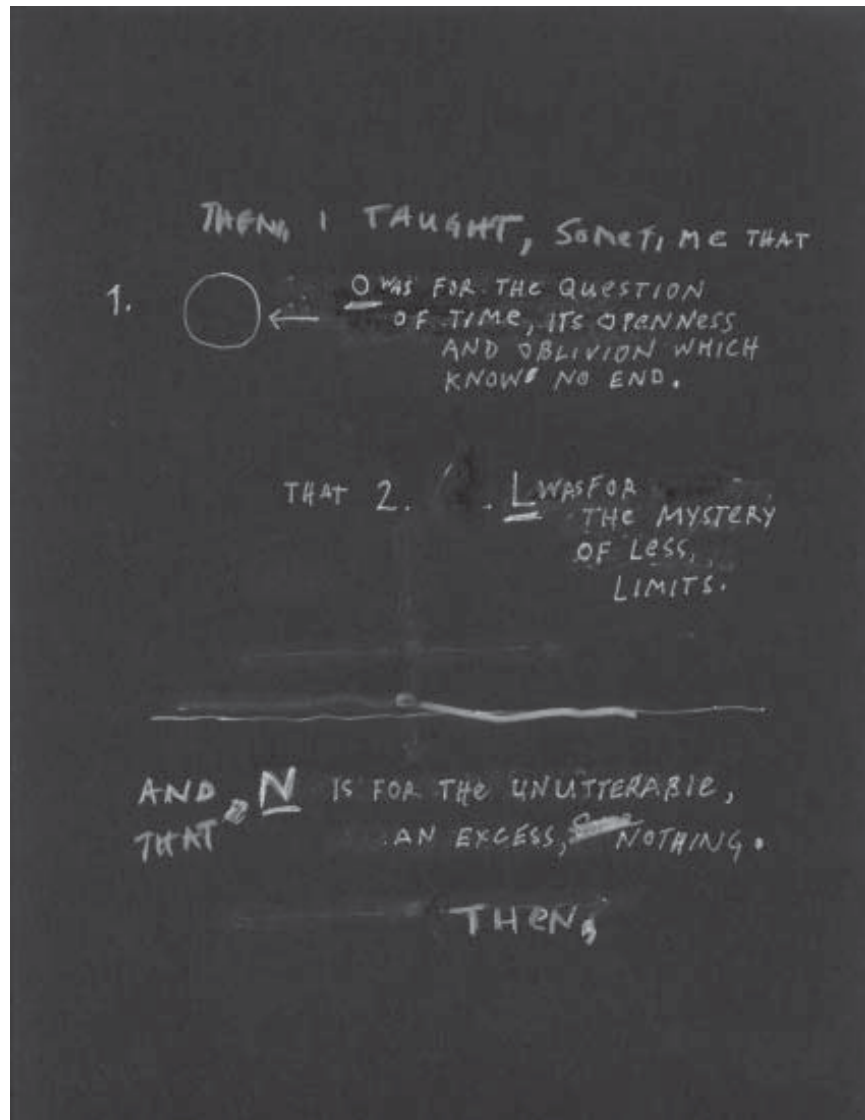 THEN, I TAUGHT, SOMETIME THAT
1. O WAS FOR THE QUESTION
OF TIME, ITS OPENNESS
AND OBLIVION WHICH
KNOWS NO END.
THAT 2. . L WAS FOR
THE MYSTERY
OF LESS,
LIMITS.
AND N IS FOR THE UNUTTERABLE,
THAT AN EXCESS, NOTHING.
THEN,